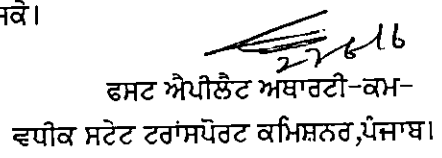 ਸਕੇ।
22/6/16
ਫਸਟ ਐਪੀਲੈਟ ਅਥਾਰਟੀ-ਕਮ-
ਵਧੀਕ ਸਟੇਟ ਟਰਾਂਸਪੋਰਟ ਕਮਿਸ਼ਨਰ,ਪੰਜਾਬ।